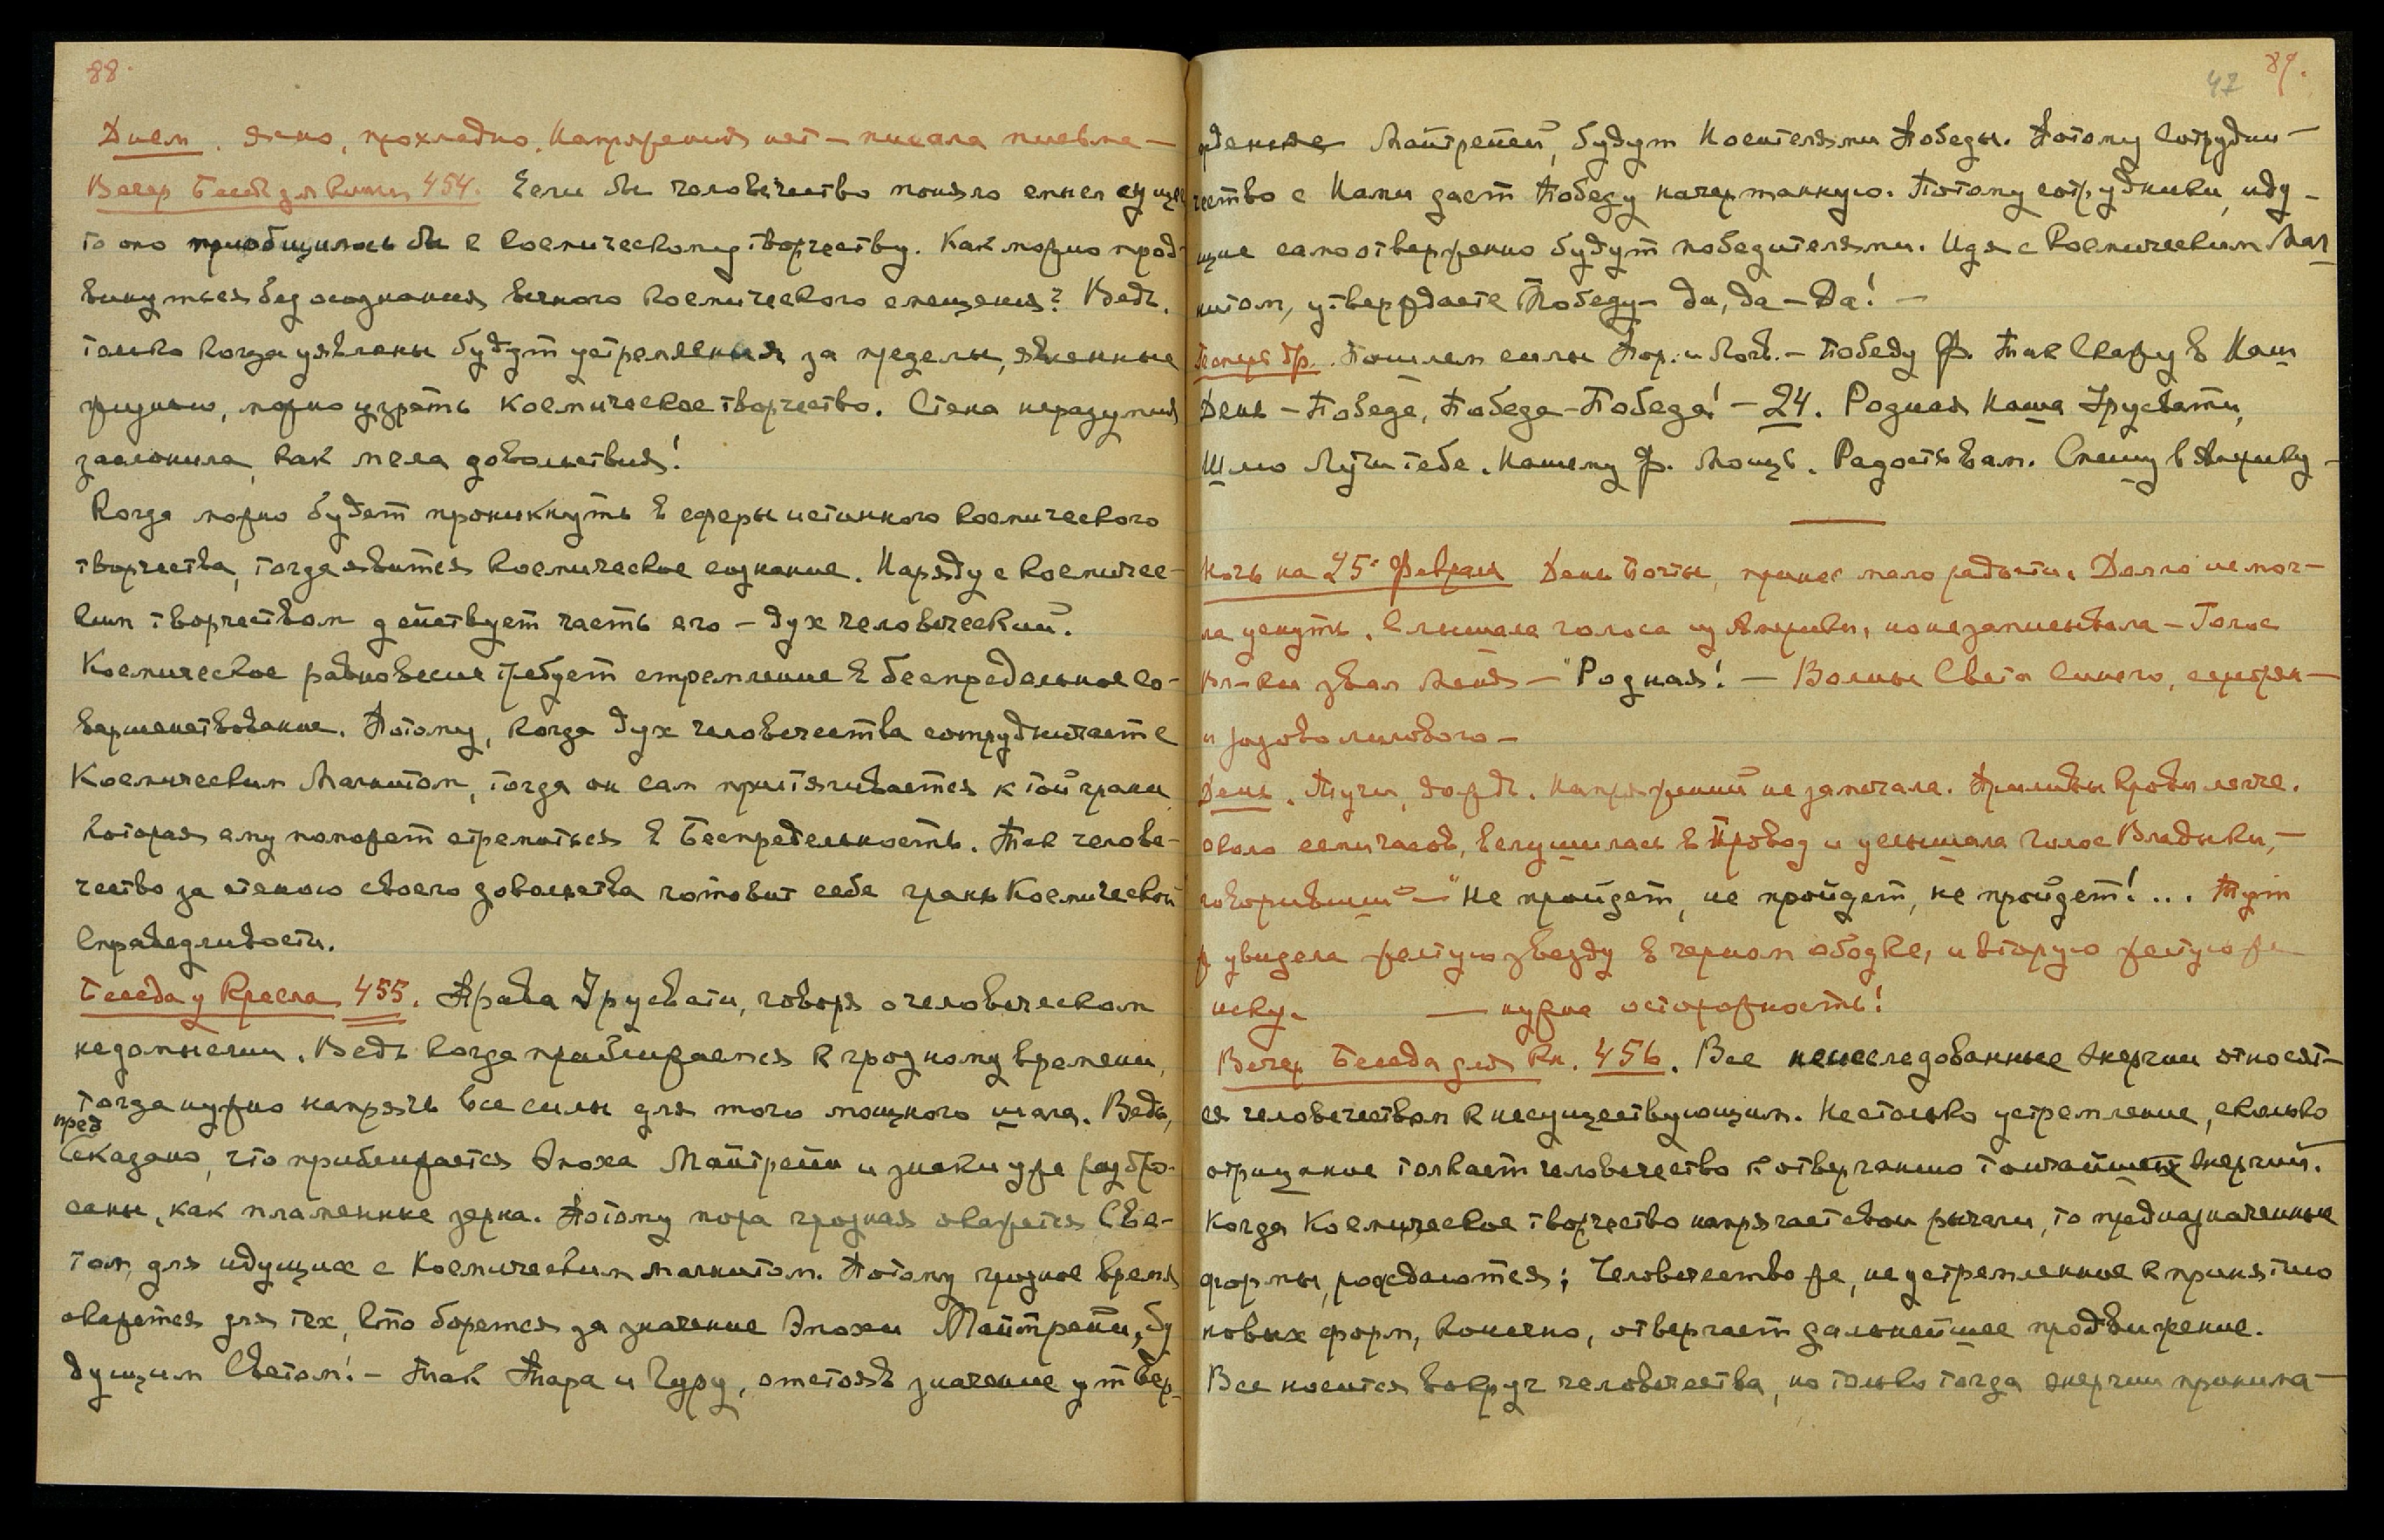 88.
Днем. Ясно, прохладно. Напряжения нет – писала письма –
Вечер Бесед. для книги 454. Если бы человечество поняло смысл сущес
то оно приобщилось бы к Космическому творчеству. Как можно прод-
винуться без осознания вечного космического смещения? Ведь
только когда уявлены будут устремления за пределы, явленные
жизнью, можно узреть Космическое творчество. Стена неразумия
заслонила, как мгла довольствия!
Когда можно будет проникнуть в сферы истинного космического
творчества, тогда явится космическое сознание. Наряду с космичес-
ким творчеством действует часть его – дух человеческий.
Космическое равновесие требует стремление в беспредельное со-
вершенствование. Потому, когда дух человечества сотрудничает с
Космическим Магнитом, тогда он сам притягивается к той грани
которая ему поможет стремиться в Беспредельность. Так челове-
чество за стеною своего довольства готовит себе грань Космической
Справедливости.
Беседа у Кресла 455. Права Урусвати, говоря о человеческом
недомыслии. Ведь когда приближается к грозному времени,
тогда нужно напрячь все силы для того мощного шага. Ведь,
пред
Сказано, что приближается Эпоха Майтрейи и знаки уже разбро-
саны, как пламенные зерна. Потому пора грозная окажется Све-
том, для идущих с Космическим магнитом. Потому грозное время
окажется для тех, кто борется за значение Эпохи Майтрейи, бу
дущим Светом! – Так Тара и Гуру, отстояв значение утвер-
47 89.
ждение Майтрейей, будут Носителями Победы. Потому сотрудни-
чество с Нами дает Победу начертанную. Потому сотрудники, иду-
щие самоотверженно будут победителями. Идя с Космическим Маг
нитом, утверждаете Победу – да, да – Да! –
Теперь др. Пошлем силы Пор. и Лог. – Победу Ф. Так Скажу в Наш
День – Победа, Победа – Победа! – 24. Родная Наша Урусвати,
Шлю Лучи тебе. Нашему Ф. Мощь. Радость вам. Спешу в Америку –
Ночь на 25-е Февраля День Почты, принес мало радости. Долго не мог-
ла уснуть. Слышала голоса из Америки, но не записывала – Голос
Вл-ки звал меня – "Родная! – Волны Света синего, серебрян-
и розово лилового –
День. Тучи, дождь. Напряжений не замечала. Приливы крови легче.
около семи часов, вслушилась в Провод и услышала голос Владыки, –
говоривший – "Не пройдет, не пройдет, не пройдет! ... Тут
я увидела желтую звезду в черном ободке, и вторую желтую же
ниску. — нужна осторожность!
Вечер Беседа для Кн. 456. Все неисследованные энергии относят-
ся человечеством к несуществующим. Не столько устремление, сколько
отрицание толкает человечество к отверганию тончайших энергий.
Когда Космическое творчество напрягает свои рычаги, то предназначенные
формы, рождаются; Человечество же, не устремленное к принятию
новых форм, конечно, отвергает дальнейшее продвижение.
Все носится вокруг человечества, но только тогда энергии принима-